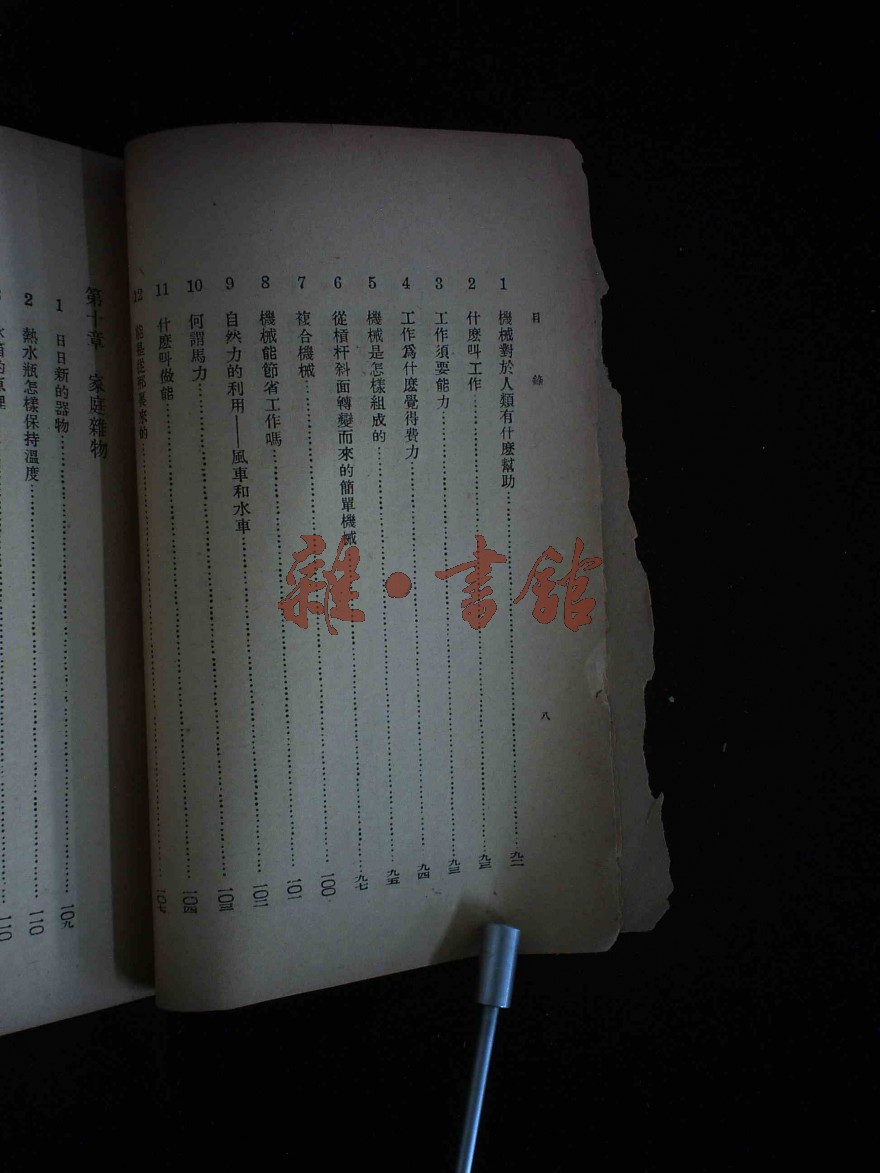 目錄
1 機械對於人類有什麼幫助 九二
2 什麼叫工作 九三
3 工作須要能力 九三
4 工作爲什麼覺得費力 九四
5 機械是怎樣組成的 九五
6 從槓杆斜面轉變而來的簡單機械 九七
7 複合機械 一〇〇
8 機械能節省工作嗎 一〇一
9 自然力的利用——風車和水車 一〇二
10 何謂馬力 一〇三
11 什麼叫做能 一〇四
12 能是從那裏來的 一〇七
八
第十章 家庭雜物
1 日日新的器物 一〇九
2 熱水瓶怎樣保持溫度 一一〇
一一〇
雜·書館